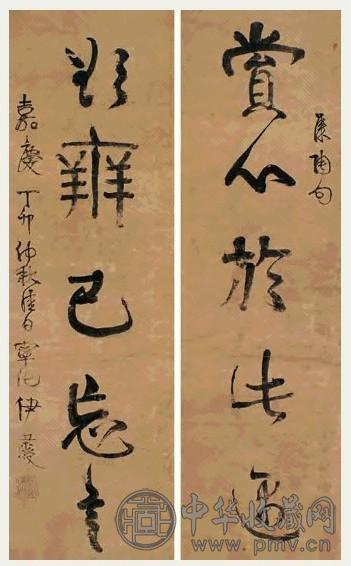 賞心於此遇
陶句
欲辯已忘言
嘉慶丁卯仲秋日寧化伊
中华收藏网
www.pmv.cn